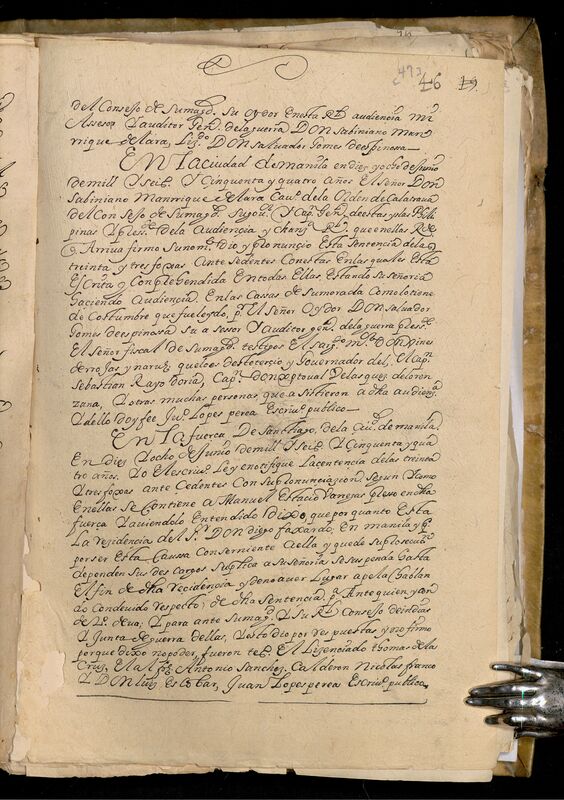 493
46 19
del Consejo de Su magd. Su oydor en esta Rl. audiencia mi
Assesor Y auditor Genl. de la guerra DON Sabiniano Manrr
rique de lara, Ligdo. DON saluador Gomes de espinosa
EN la ciudad de manila en dies y ocho de junio
de mill Y seis Y Cinquenta y quatro años El señor DON
Sabiniano Manrrique de lara Cauo. de la Orden de Calatraua
del Consejo de Su magd. Su gou. Y Capn. Genl. de estas yslas Phili
pinas Y Pres. de la Audiencia y chanza. Rl. que en ellas Re
Arriua firmo Su nombre dio y pronunçio Esta Sentencia de la
treinta y tres foxas Antesedentes Con estas En las quales Esta
Escrita y Conprehendida En todas Ellas, Estando su señoria
haciendo Audiencia, En las Cassas de Su morada Como lo tiene
de Costumbre que fue leydo, pr. El Señor Oydor DON saluador
Gomes de espinosa Su asesor Y Auditor genl. de la guerra press.
El señor fiscal de Su magd. testigos El Sargto. mr.
de rrojas y naruaez que lo es deste terçio y Governador del, El Capn.
Sebastian Rayo doria, Capn. Don xptoual Velasquez de loren
zana, Y otras muchas personas que asistieron a dha audiena.
Y dello doy fee Jun. Lopes perea Escriuo. publico
En la fuerca De Santiago, de la Ciud. de manila
En dies Y ocho de Junio de mill Y seis Y Cinquenta y qua
tro años, Yo El escriuo. Ley e notifique La sentencia de las treinta
Y tres foxas ante Cedentes Con su pronunciacion, segun Y como
En ellas se Contiene a Manuel Estacio Vanegas preso en dha
fuerca Y auiendolo Entendido, Dixo, que por quanto Esta
La residencia del Sr. DON diego faxardo, En manila y
por ser Esta Caussa Conserniente a ella y que de
dependen sus des cargos Suplica a su señoria se suspenda hasta
El fin de dha recidencia y de no auer Lugar apela hablan
do Con deuido respecto, de dha Sentencia, pa. Ante quien
de Y para ante Su magd. Y Su Rl. Conssejo de indias
Y Junta de guerra dellas, Y esto dio por respuesta y no firmo
porque dixo no poder, fueron tes. El Lizenciado thomas de la
Cruz, El alfs. Antonio Sanches, Calderon Nicolas franco
Y DON luis Escobar, Juan Lopes perea Escriuo. publico